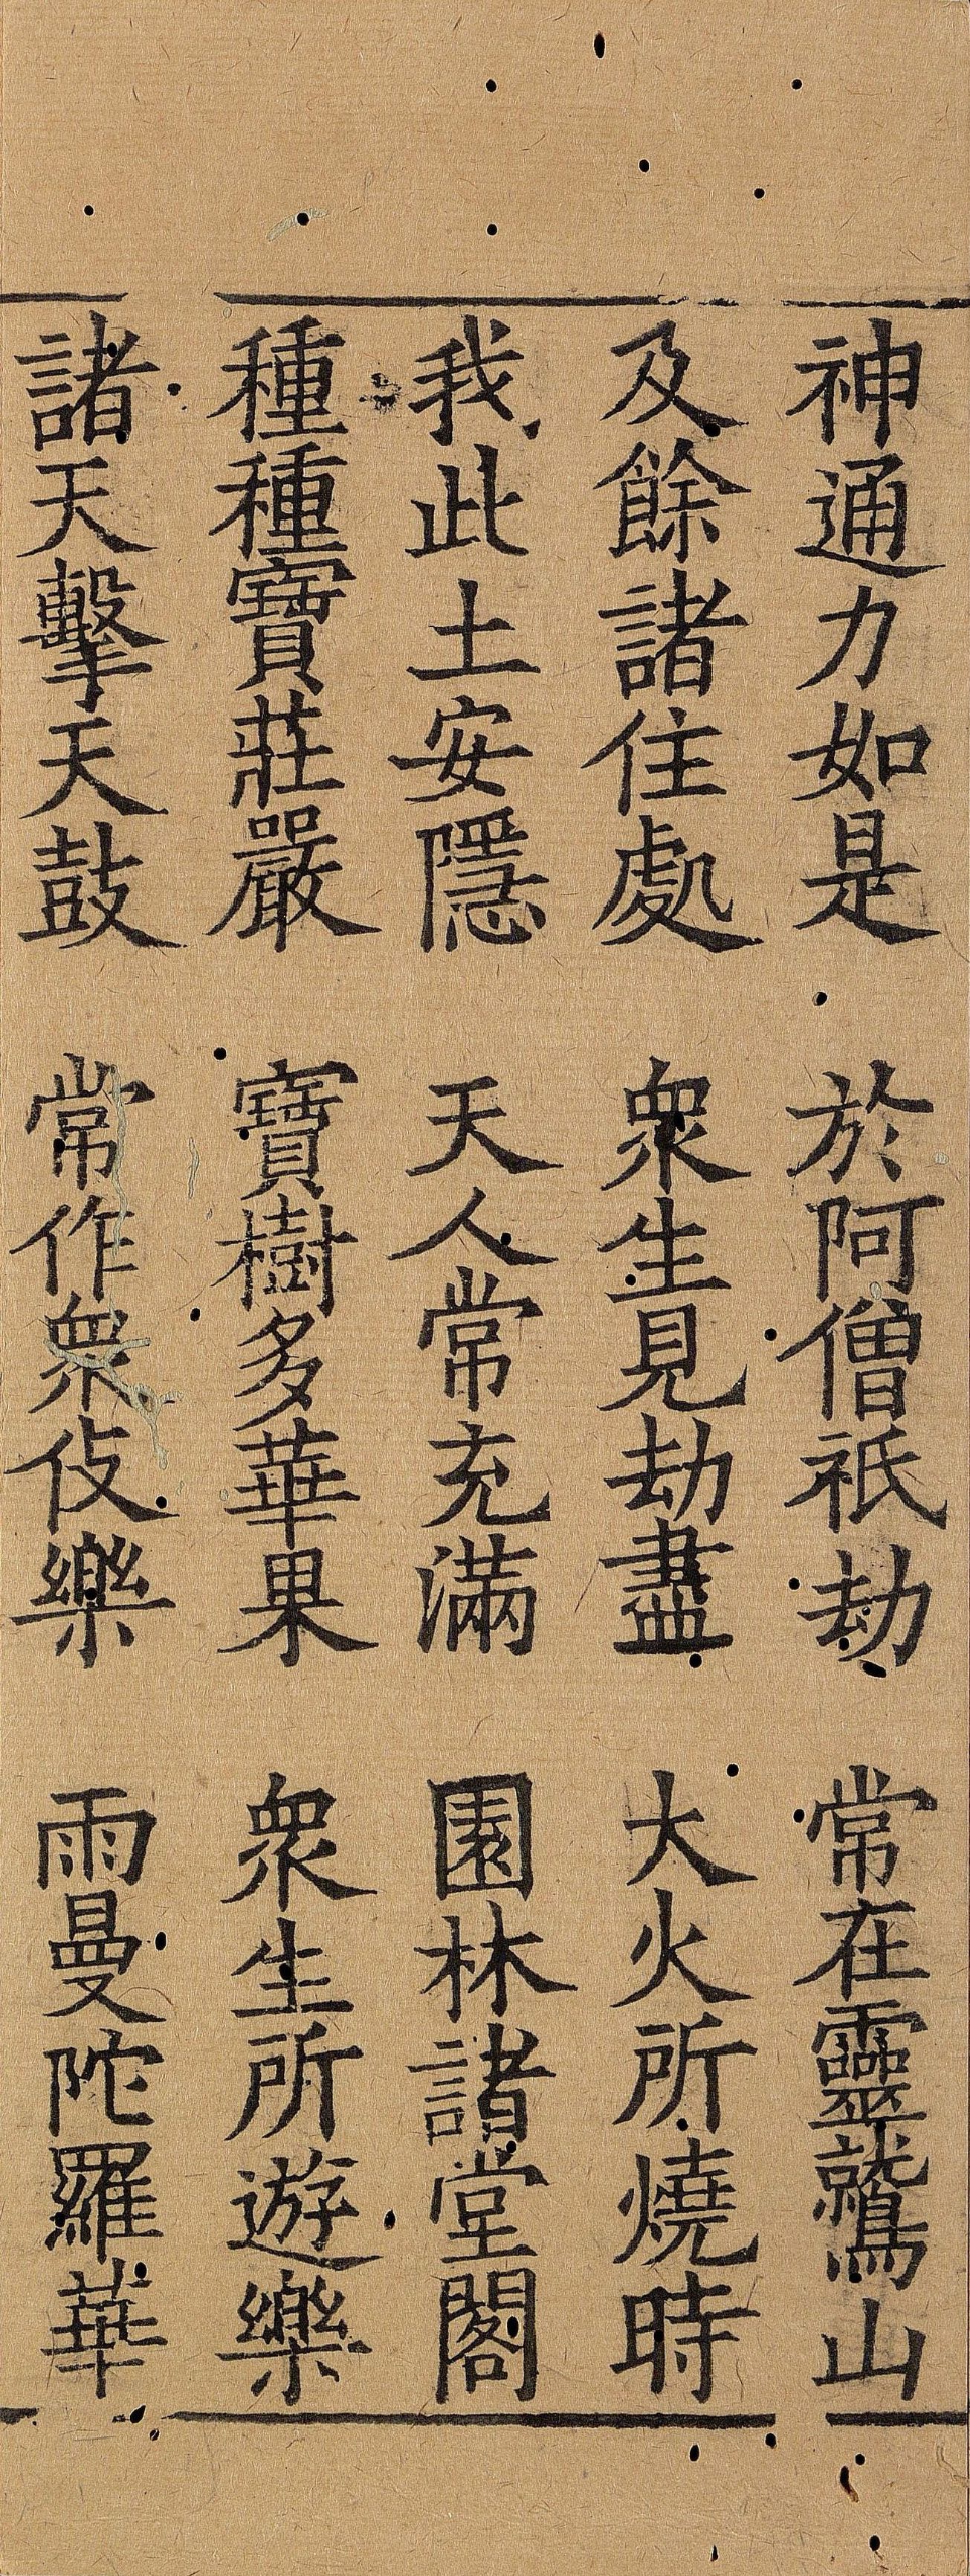 神通力如是　於阿僧祇劫　常在靈鷲山
及餘諸住處　衆生見劫盡　大火所燒時
我此土安隱　天人常充滿　園林諸堂閣
種種寶莊嚴　寶樹多華果　衆生所遊樂
諸天擊天鼓　常作衆伎樂　雨曼陀羅華